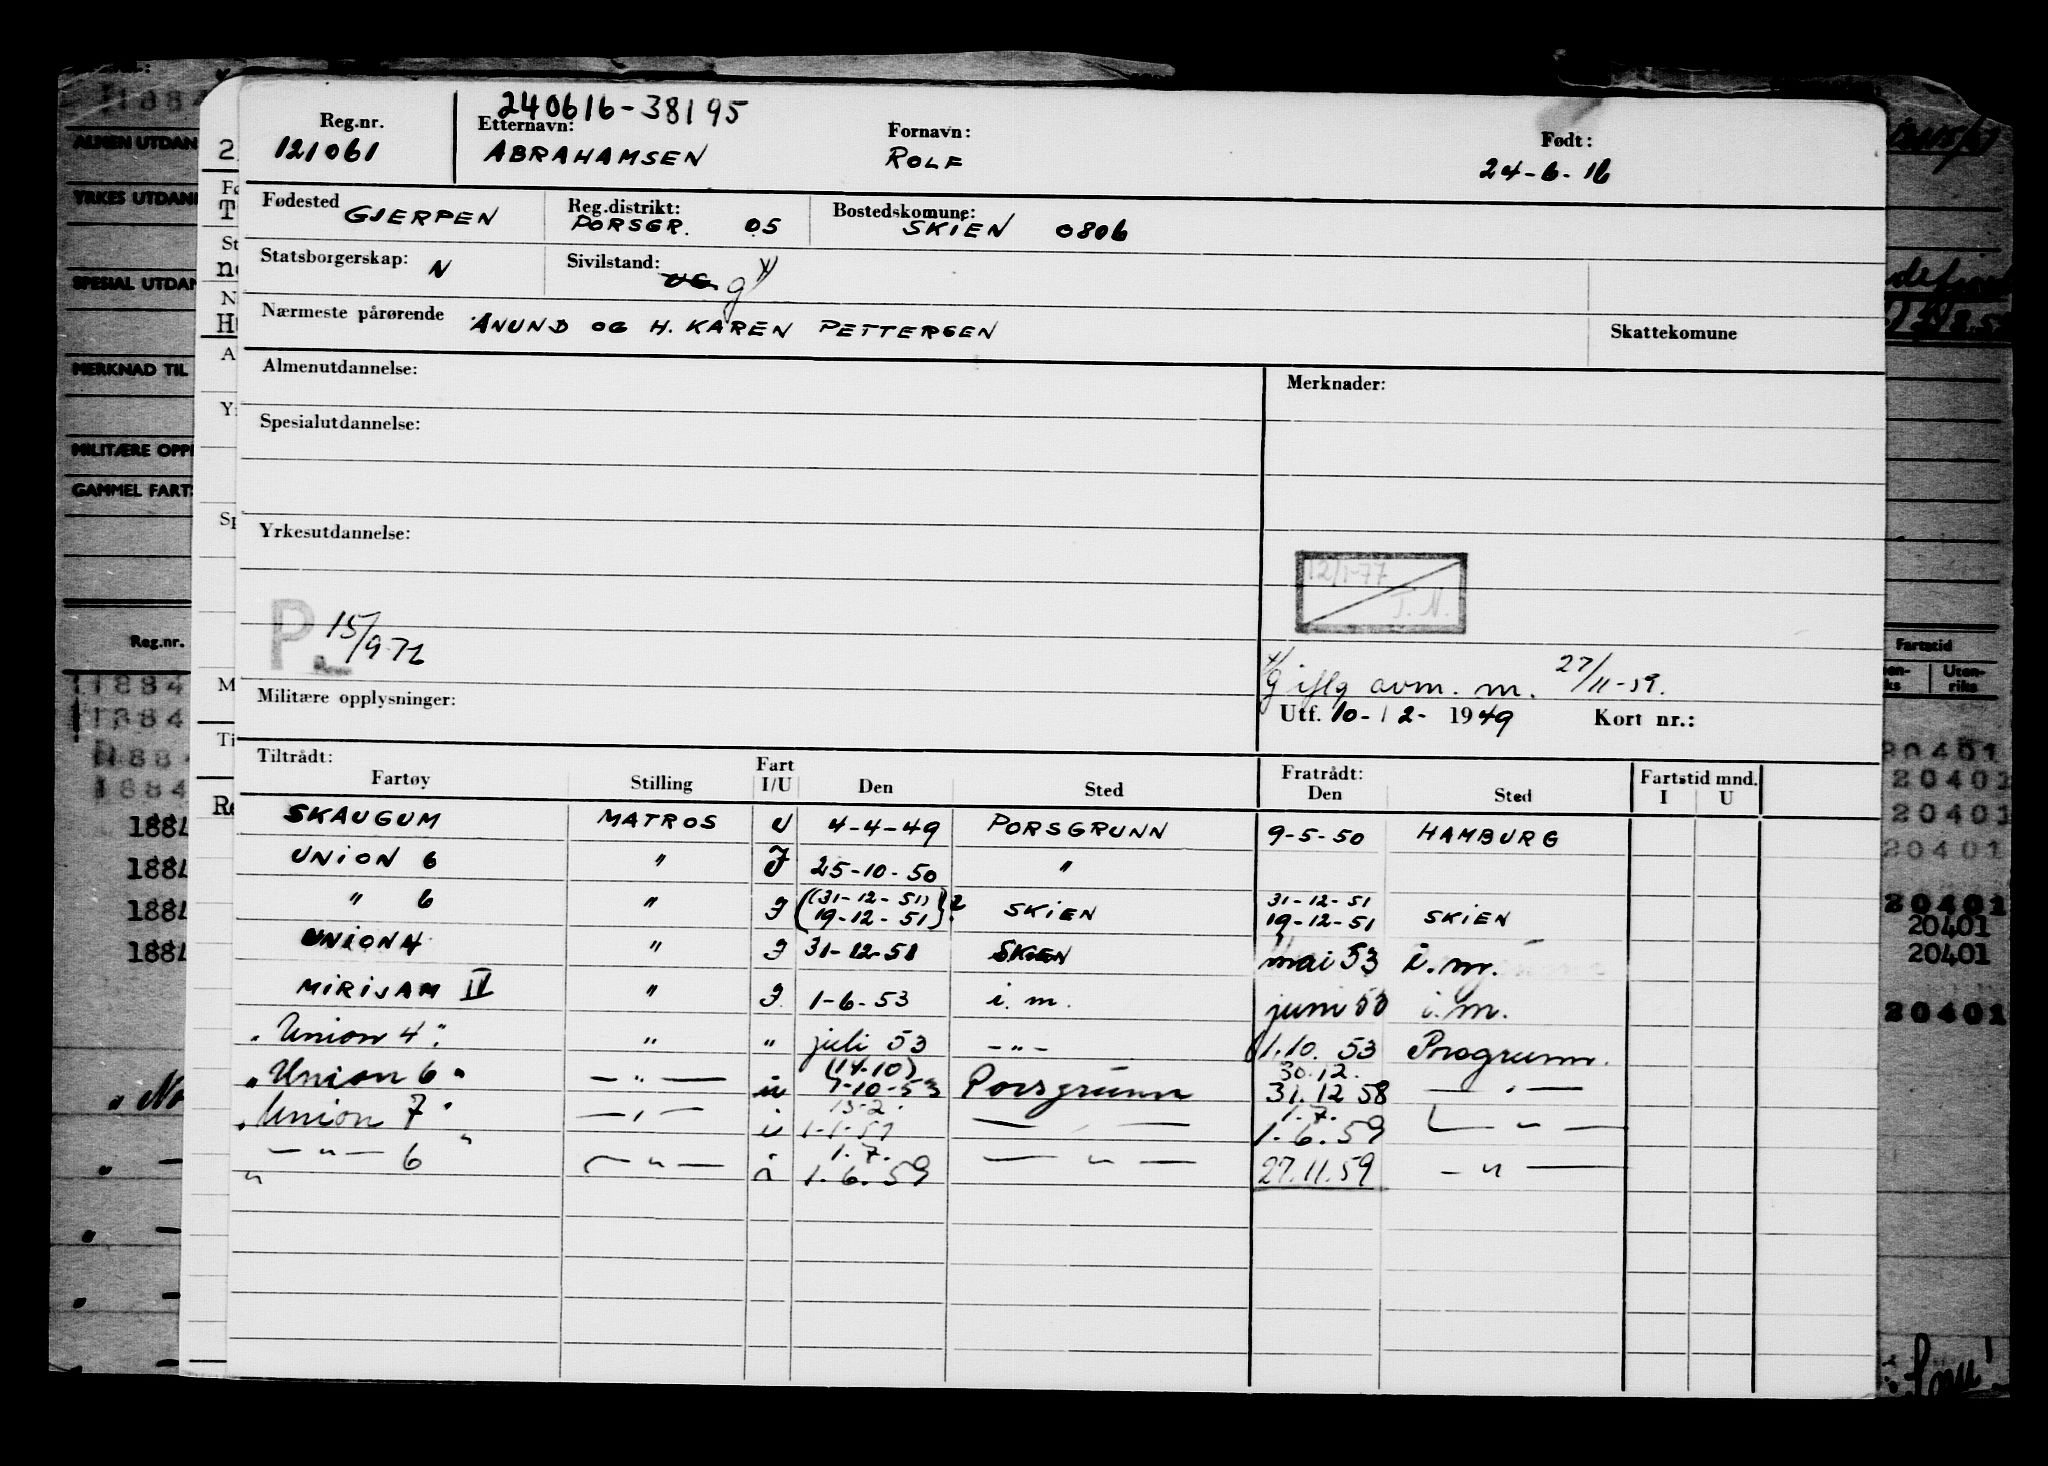 240616-38195
Reg.nr. Etternavn: Fornavn: Født:
121061 ABRAHAMSEN ROLF 24-6-16
Fødested GJERPEN Reg.distrikt: PORSGR. 05 Bostedskomune: SKIEN 0806
Statsborgerskap: N Sivilstand: UG g x)
Nærmeste pårørende ANUND OG H. KAREN PETTERSEN Skattekomune
Almenutdannelse: Merknader:
Spesialutdannelse:
Yrkesutdannelse:
12/1-77
T.N.
P 15/9 71
x/g iflg avm. m. 27/11-59.
Militære opplysninger: Utf. 10-12-1949 Kort nr.:
Tiltrådt: Fart Fratrådt: Fartstid mnd.
Fartøy Stilling I/U Den Sted Den Sted I U
SKAUGUM MATROS U 4-4-49 PORSGRUNN 9-5-50 HAMBURG
UNION 6 " I 25-10-50 "
(31-12-51) 31-12-51
" 6 " I 19-12-51 ? SKIEN 19-12-51 SKIEN
UNION 4 " I 31-12-51 SKIEN mai 53 i.m.
MIRIJAM IV " I 1-6-53 i.m. juni 53 i.m.
"Union 4" " " juli 53 -"- 1.10.53 Porsgrunn.
(14-10) 30.12.
"Union 6" -"- 1-10-53 Porsgrunn 31.12 58 -"-
13-2. 1.7.
"Union 7" -"- i 1-1-59 -"- 1.6.59 -"-
1.7.
"-"- 6" -"- i 1.6.59 -"- 27.11.59 -"-
ALMEN UTDAN
YRKES UTDAN
SPESIAL UTDAN
MERKNAD TIL
MILITÆRE OPP
GAMMEL FARTS
Reg.nr. Fartstid
Uten-
riks
11884
20401
20401
20401
20401
20401
20401
20401
20401